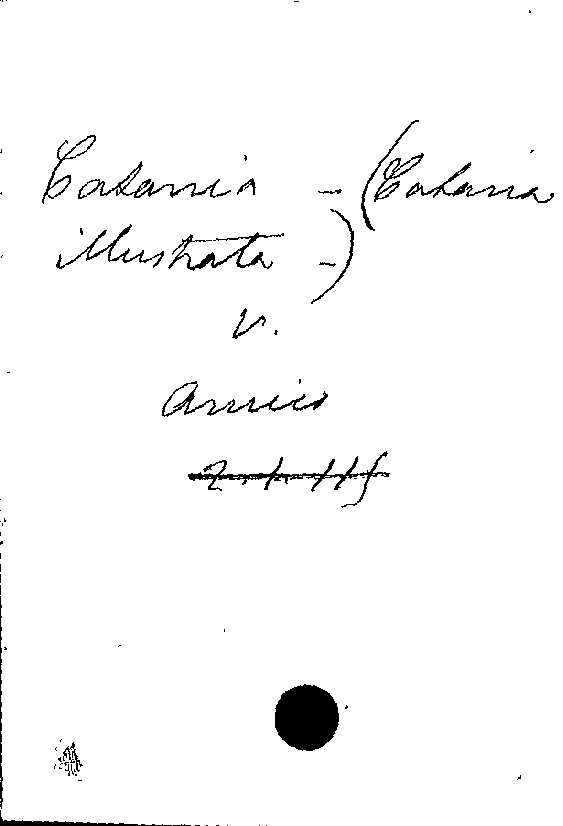 Catania - (Catania
illustrata -)
v.
Amico